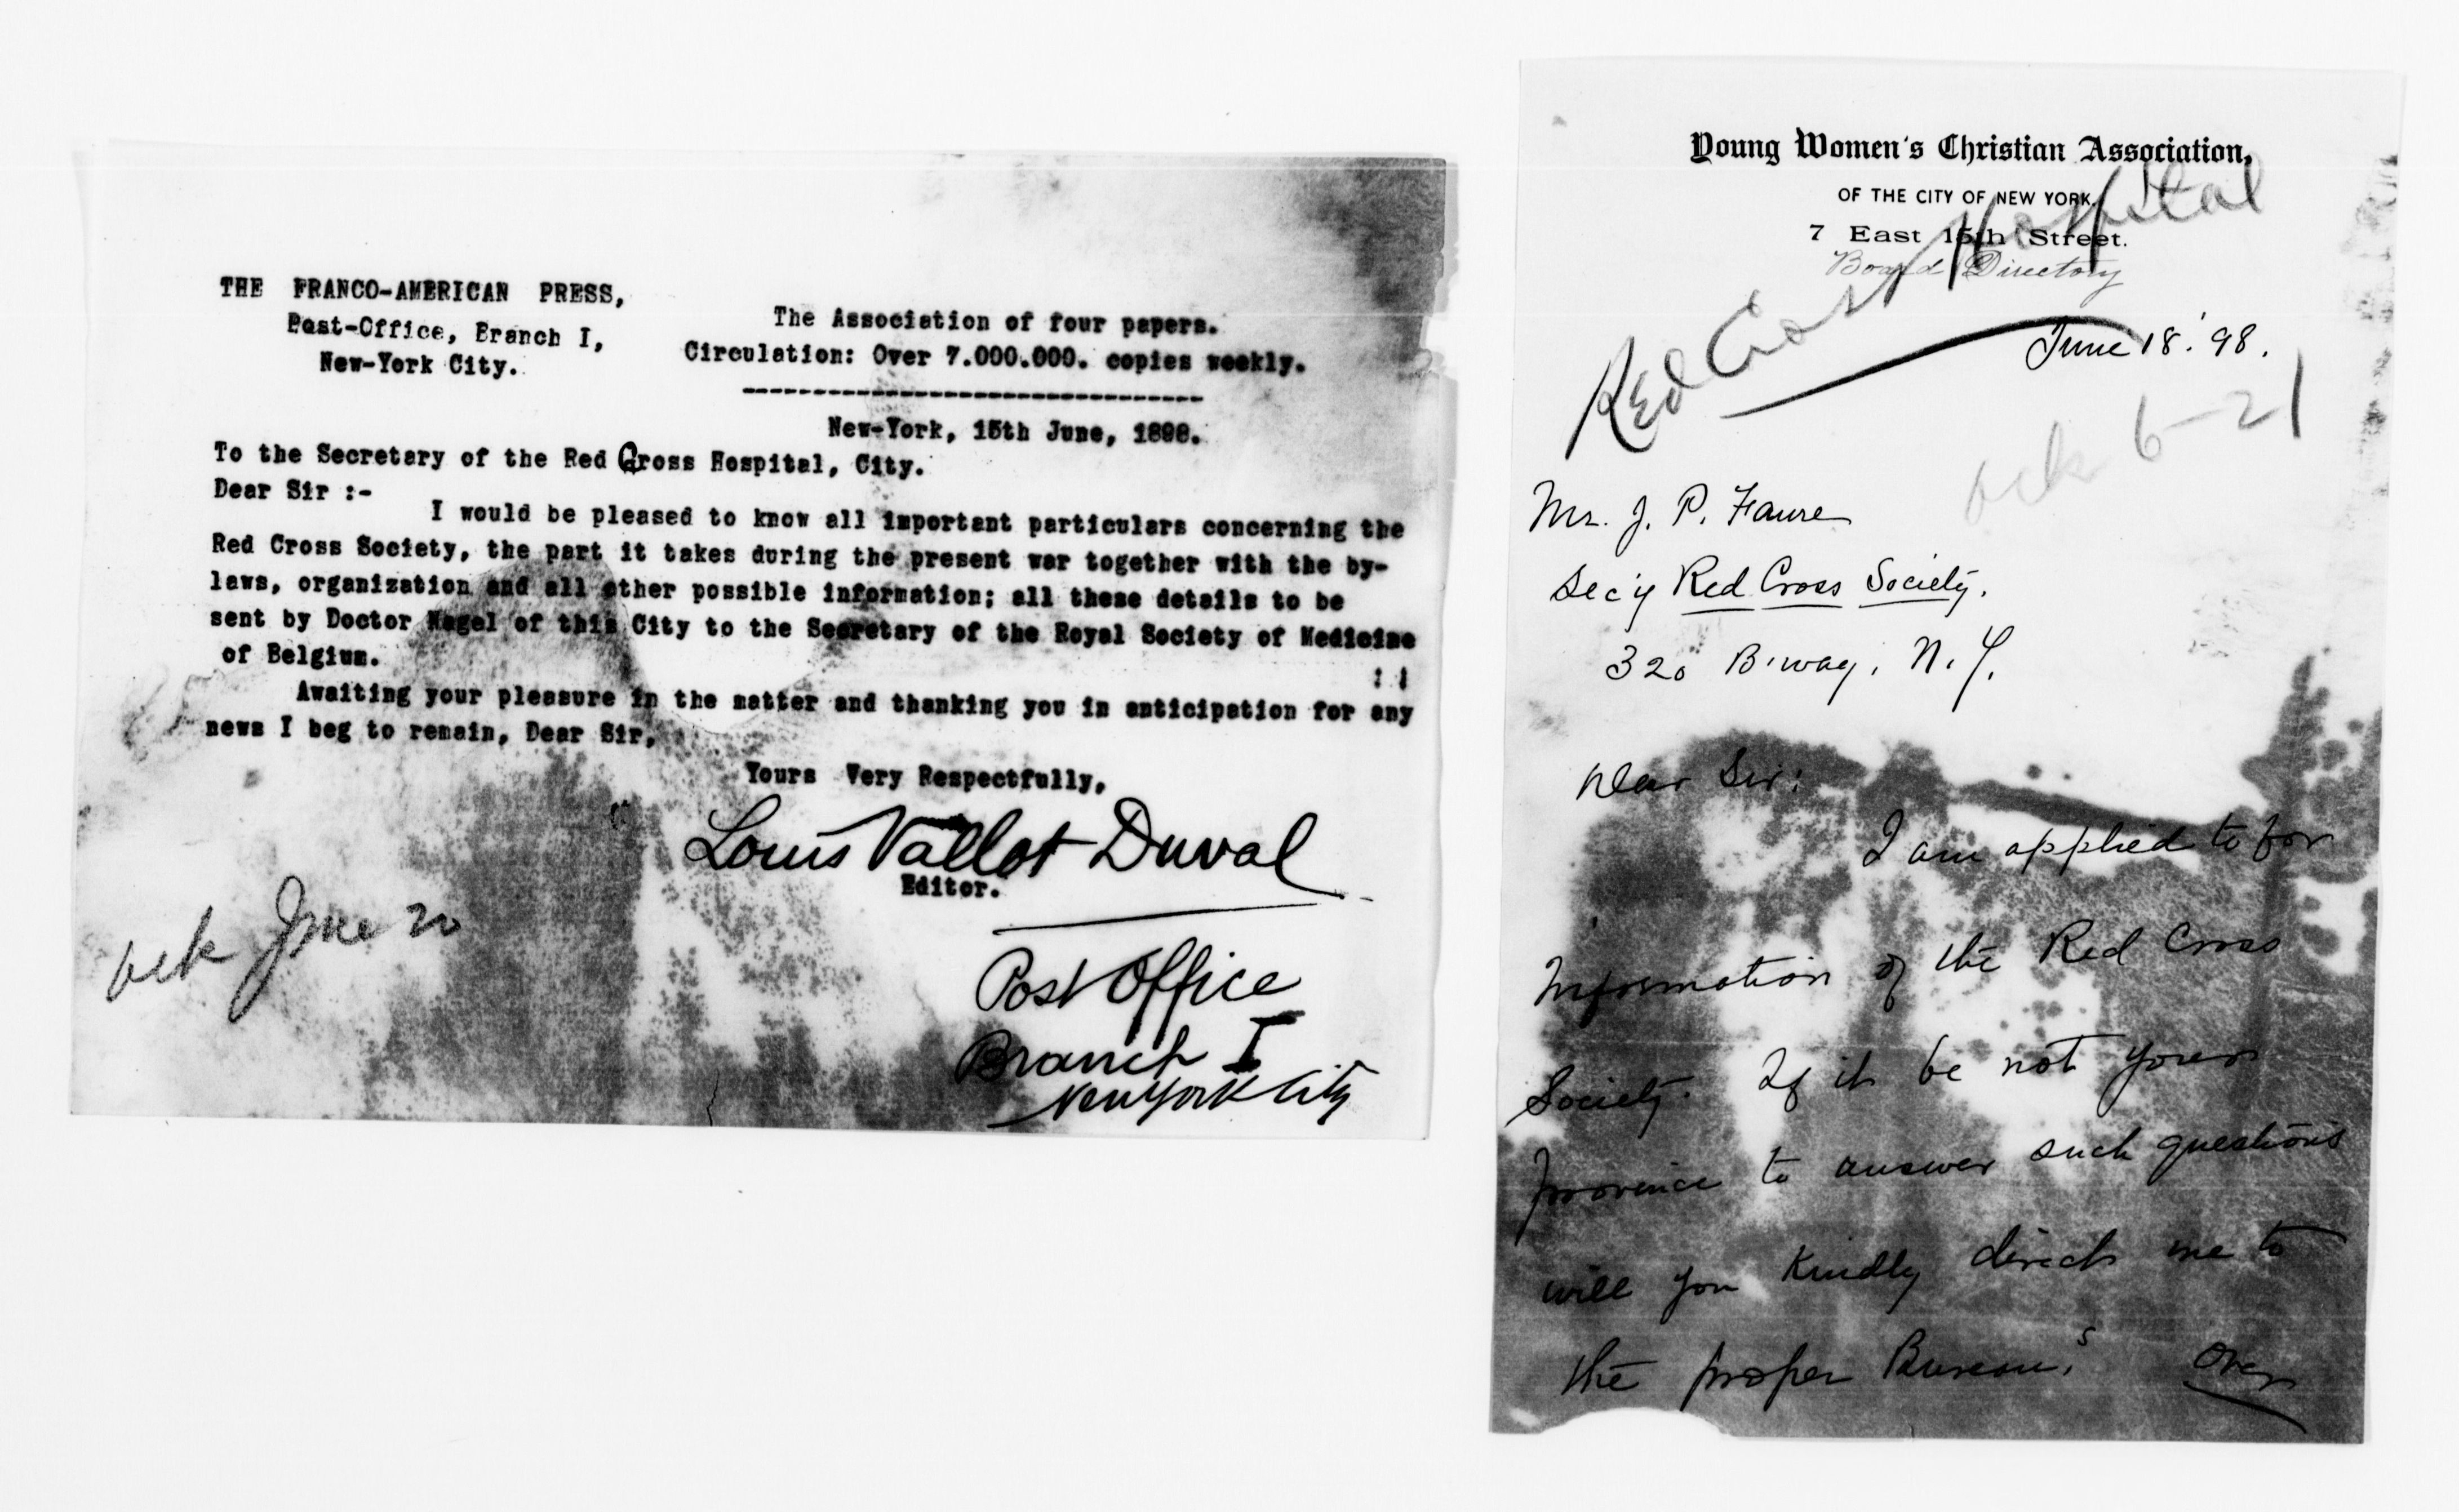 THE FRANCO-AMERICAN PRESS,
Post-Office, Branch I,
New-York City.
The Association of four papers.
Circulation: Over 7.000.000. copies weekly.
--------------------------------
New-York, 15th June, 1898.
To the Secretary of the Red Cross Hospital, City.
Dear Sir :-
I would be pleased to know all important particulars concerning the
Red Cross Society, the part it takes during the present war together with the by-
laws, organization and all other possible information; all these details to be
sent by Doctor Nagel of this City to the Secretary of the Royal Society of Medicine
of Belgium.
: :
Awaiting your pleasure in the matter and thanking you in anticipation for any
news I beg to remain, Dear Sir,
Yours Very Respectfully,
Louis Vallot Duval
Editor.
Post Office
Branch I
New York City
ack June 20
Young Women's Christian Association,
OF THE CITY OF NEW YORK,
7 East 15th Street.
Board Directory
Red Cross Hospital
June 18' 98.
ack 6-21
Mr. J. P. Faure
Sec'y Red Cross Society.
320 B'way, N. Y.
Dear Sir:
I am applied to for
information of the Red Cross
Society. If it be not your
province to answer such questions
will you kindly direct me to
the proper Bureau,s
Over